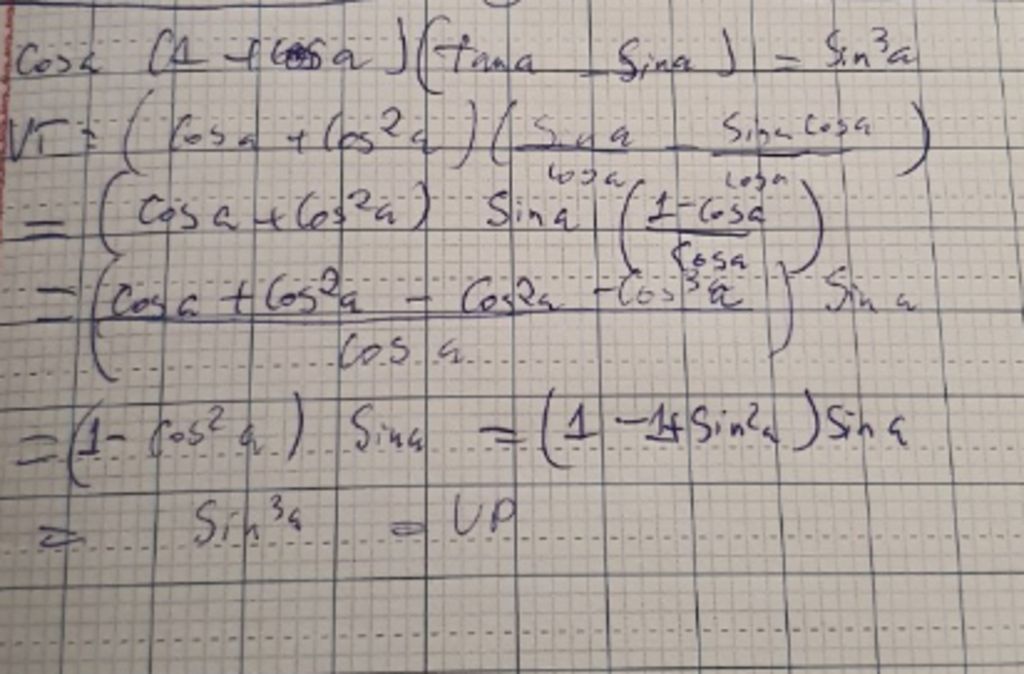 cosa (1 + cosa)(tana - sina) = sin³a
VT = (cosa + cos²a)(sina/cosa - sina cosa/cosa)
= (cosa + cos²a) sina (1-cosa/cosa)
= (cosa + cos²a - cos²a - cos³a/cosa) sina
= (1 - cos²a) sina = (1 - 1 + sin²a) sina
= sin³a = VP